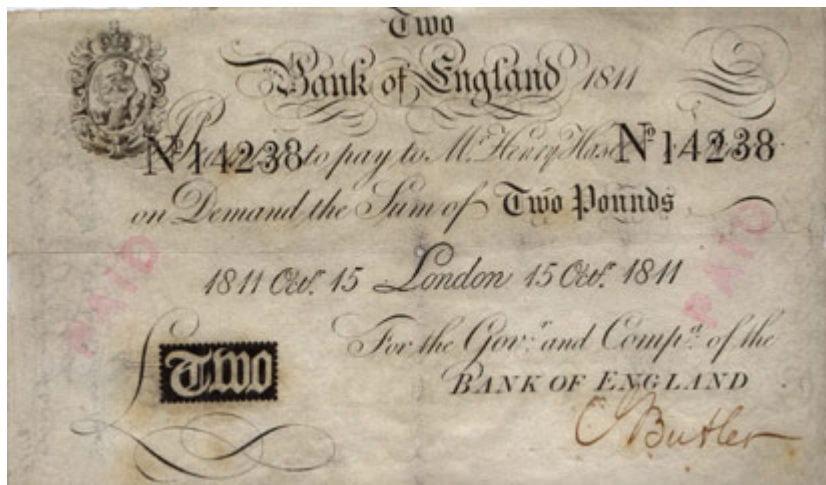 Two
Bank of England 1811
Nº 14238 to pay to Mr. Henry Hase Nº 14238
on Demand the Sum of Two Pounds
1811 Octr. 15 London 15 Octr. 1811
PAID
PAID
For the Govr. and Compa. of the
£ Two
BANK OF ENGLAND
C Butler